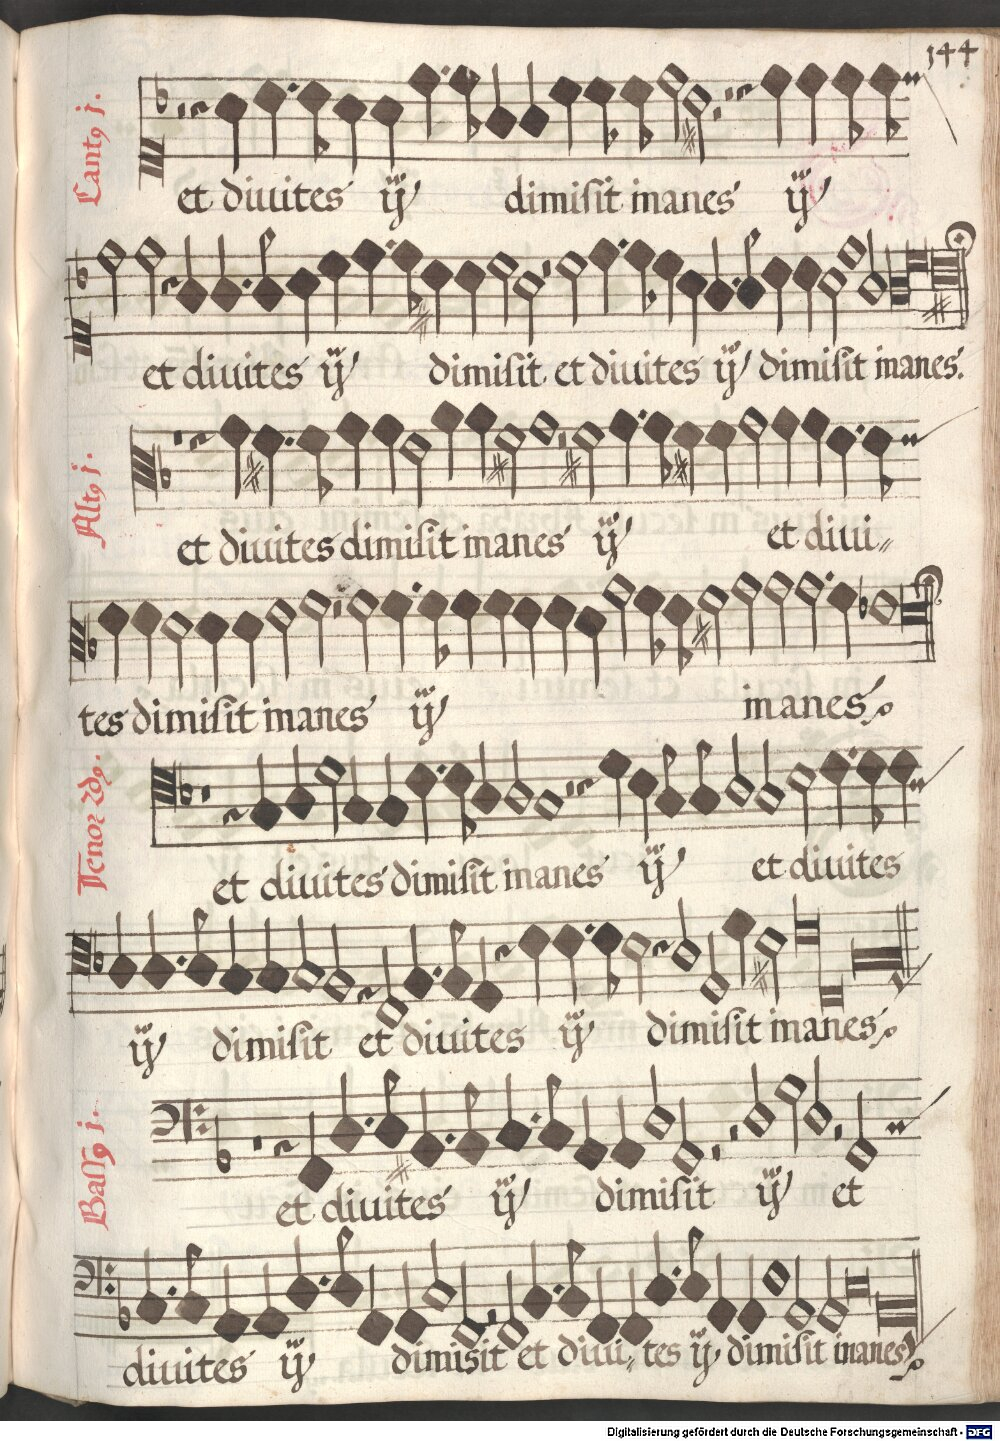 144
Cantꝰ j.
et diuites ij dimisit inanes ij
et diuites ij dimisit et diuites ij dimisit inanes.
Altꝰ j.
et diuites dimisit inanes ij et diui-
tes dimisit inanes ij inanes
Tenor 2dꝰ.
et diuites dimisit inanes ij et diuites
ij dimisit et diuites ij dimisit inanes
Bassꝰ j.
et diuites ij dimisit ij et
diuites ij dimisit et diui-tes ij dimisit inanes
Digitalisierung gefördert durch die Deutsche Forschungsgemeinschaft - DFG